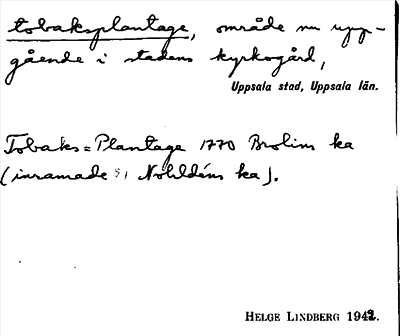 tobaksplantage, område nu upp-
gående i stadens kyrkogård,
Uppsala stad, Uppsala län.
Tobaks=Plantage 1770 Brolins ka
(inramade s, Nohldéns ka).
HELGE LINDBERG 1942.